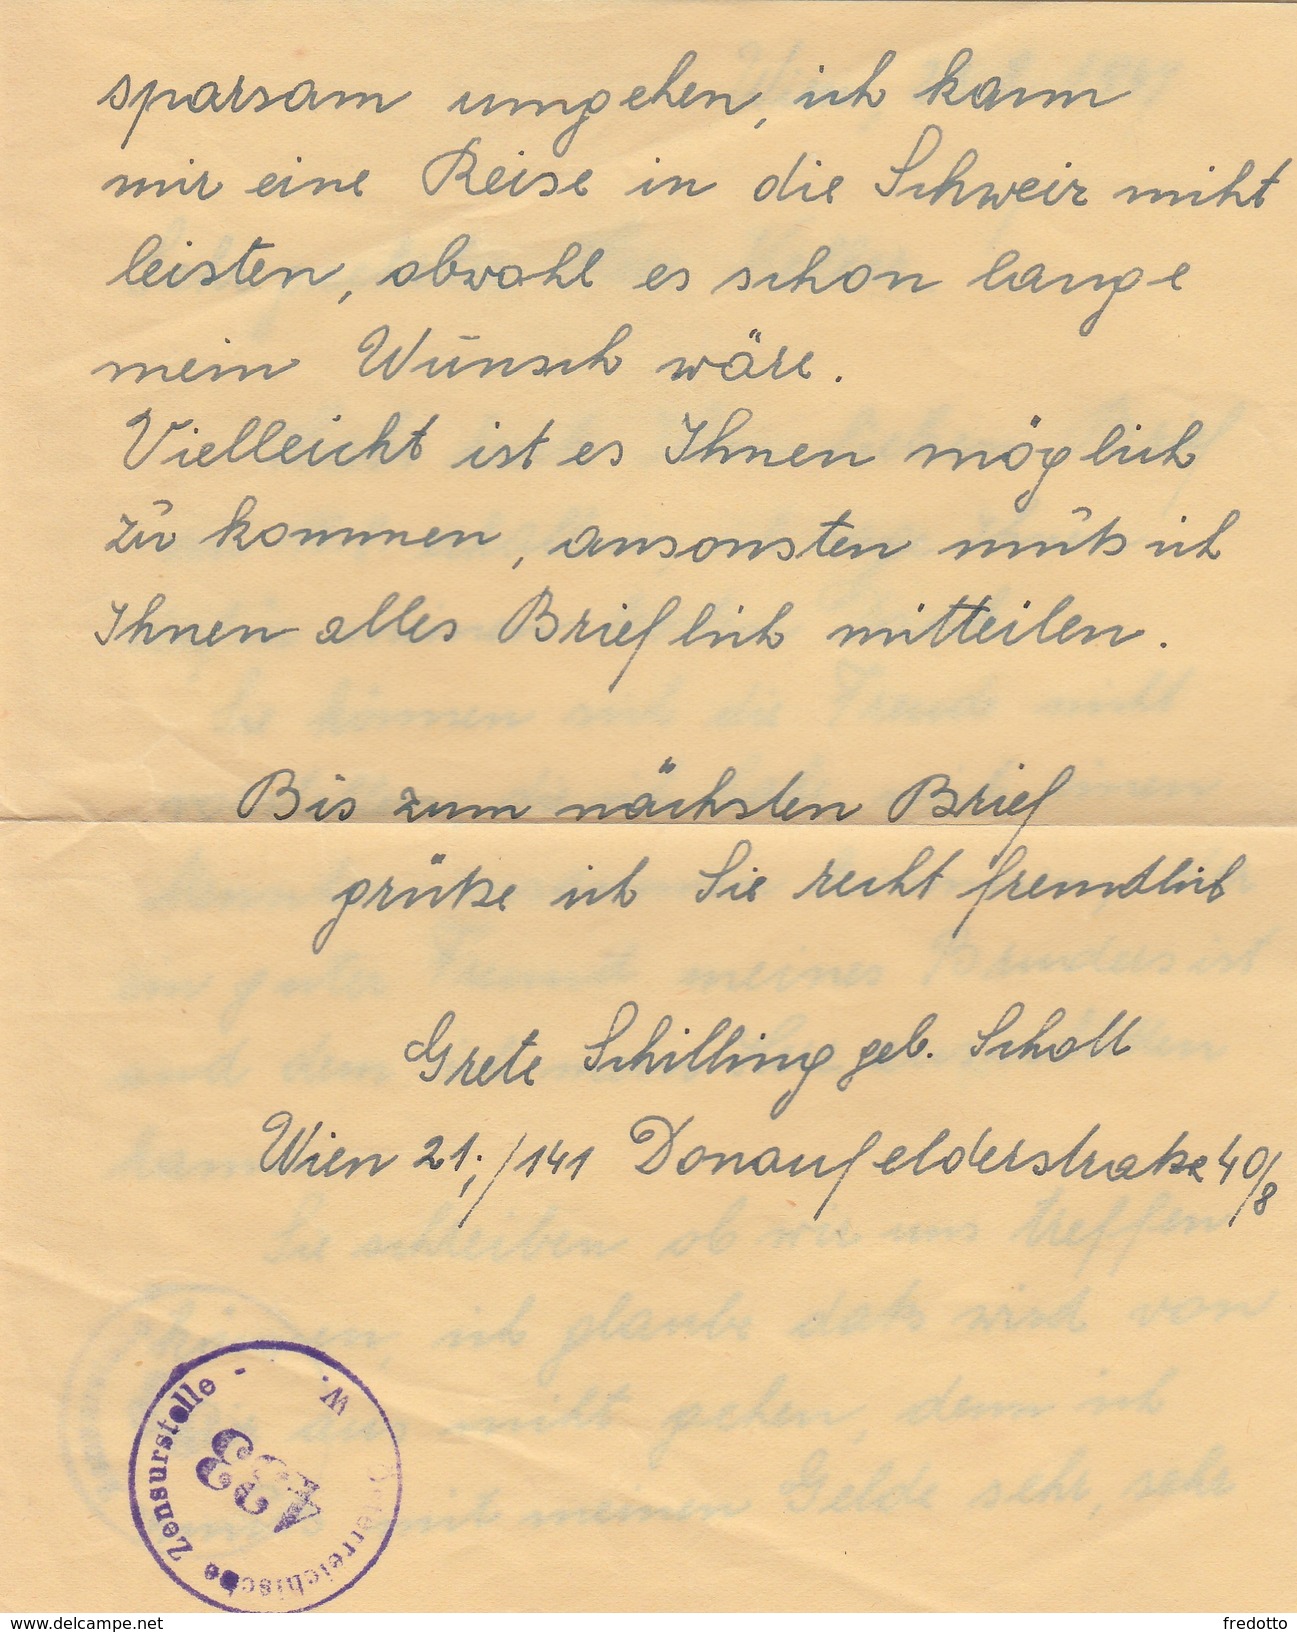 sparsam umgehen, ich kann
mir eine Reise in die Schweiz nicht
leisten, obwohl es schon lange
mein Wunsch wäre.
Vielleicht ist es Ihnen möglich
zu kommen, ansonsten muß ich
Ihnen alles Brieflich mitteilen.
Bis zum nächsten Brief
grüße ich Sie recht freundlich
Grete Schilling geb. Scholl
Wien 21;/141 Donaufelderstraße 40/8
Österreichische Zensurstelle - W.
433
www.delcampe.net
fredotto